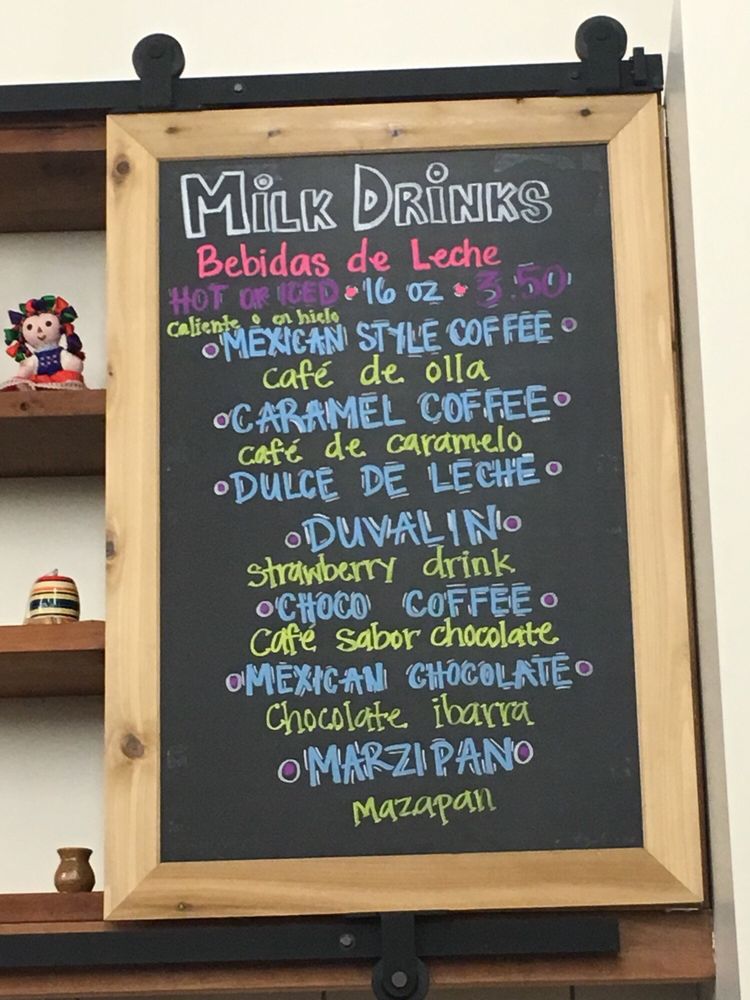 MiLK DRiNKS
Bebidas de Leche
HOT OR ICED • 16 OZ • 3.50
Caliente o en hielo
MEXICAN STYLE COFFEE
café de olla
CARAMEL COFFEE
café de caramelo
DULCE DE LECHE
DUVALIN
strawberry drink
CHOCO COFFEE
Café sabor chocolate
MEXICAN CHOCOLATE
Chocolate ibarra
MARZIPAN
Mazapan